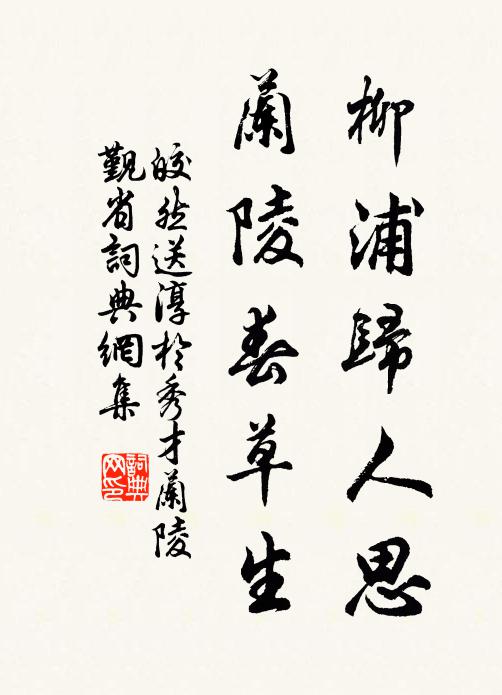 柳浦歸人思
蘭陵春草生
皎然送淳於秀才蘭陵
覲省詞典網集
詞典
网印